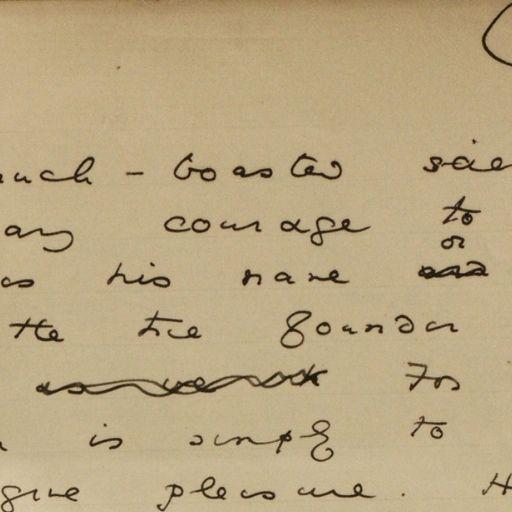 much - boasted scie
any courage to
or
as his name
the true founder
For
is simply to
give pleasure. H